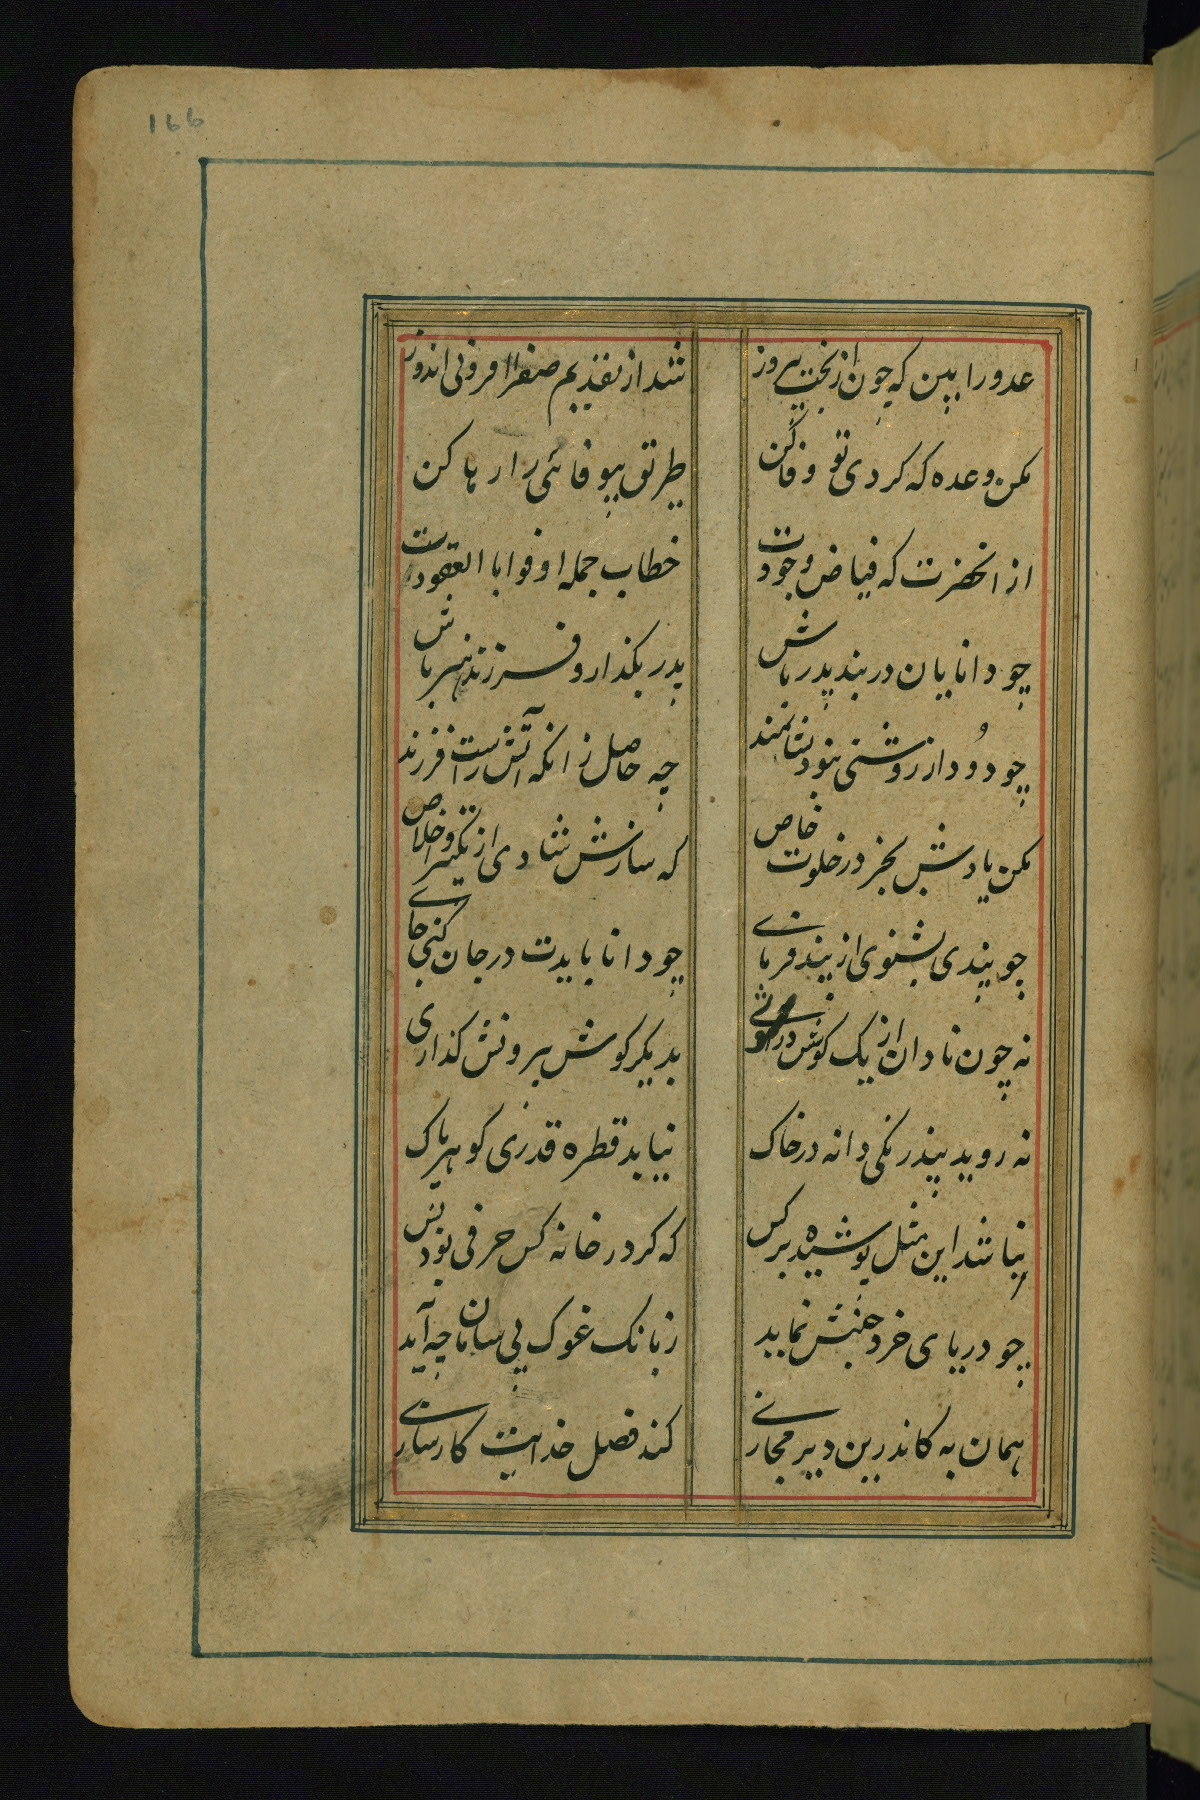 ۱۶۶
عدو را ببین که چون از بخت پیروز شد از تقدیم صفر افزونی اندوز
مکن وعده که کردی تو وفا کن طریق بیوفائی را رها کن
از انحضرت که فیاض وجودت خطاب جمله اوفوا با العقودست
چو دانایان در بند پدر باش پدر بگذار و فرزند هنر باش
چو دُود از روشنی نبود نشانمند چه حاصل زانکه آتش راست فرزند
مکن یادش بجز در خلوت خاص که سازش شادی از وخلاص
چو پندی بشنوی از پند فرمای چو دانا بایدت در جان کنی جای
نه چون نادان از یک گوش در بدیگر گوش بیرونش گذاری
نه روید بیدرنگی دانه در خاک نیابد قطره قدری گوهر پاک
نباشد این مثل پوشیده بر کس که گر در خانه کس حرفی بود بس
چو دریای خرد جنبش نماید ز بانک غوک بی سامان چه آید
همان به کاندرین دیر مجازی کند فضل خدایت کارسازی